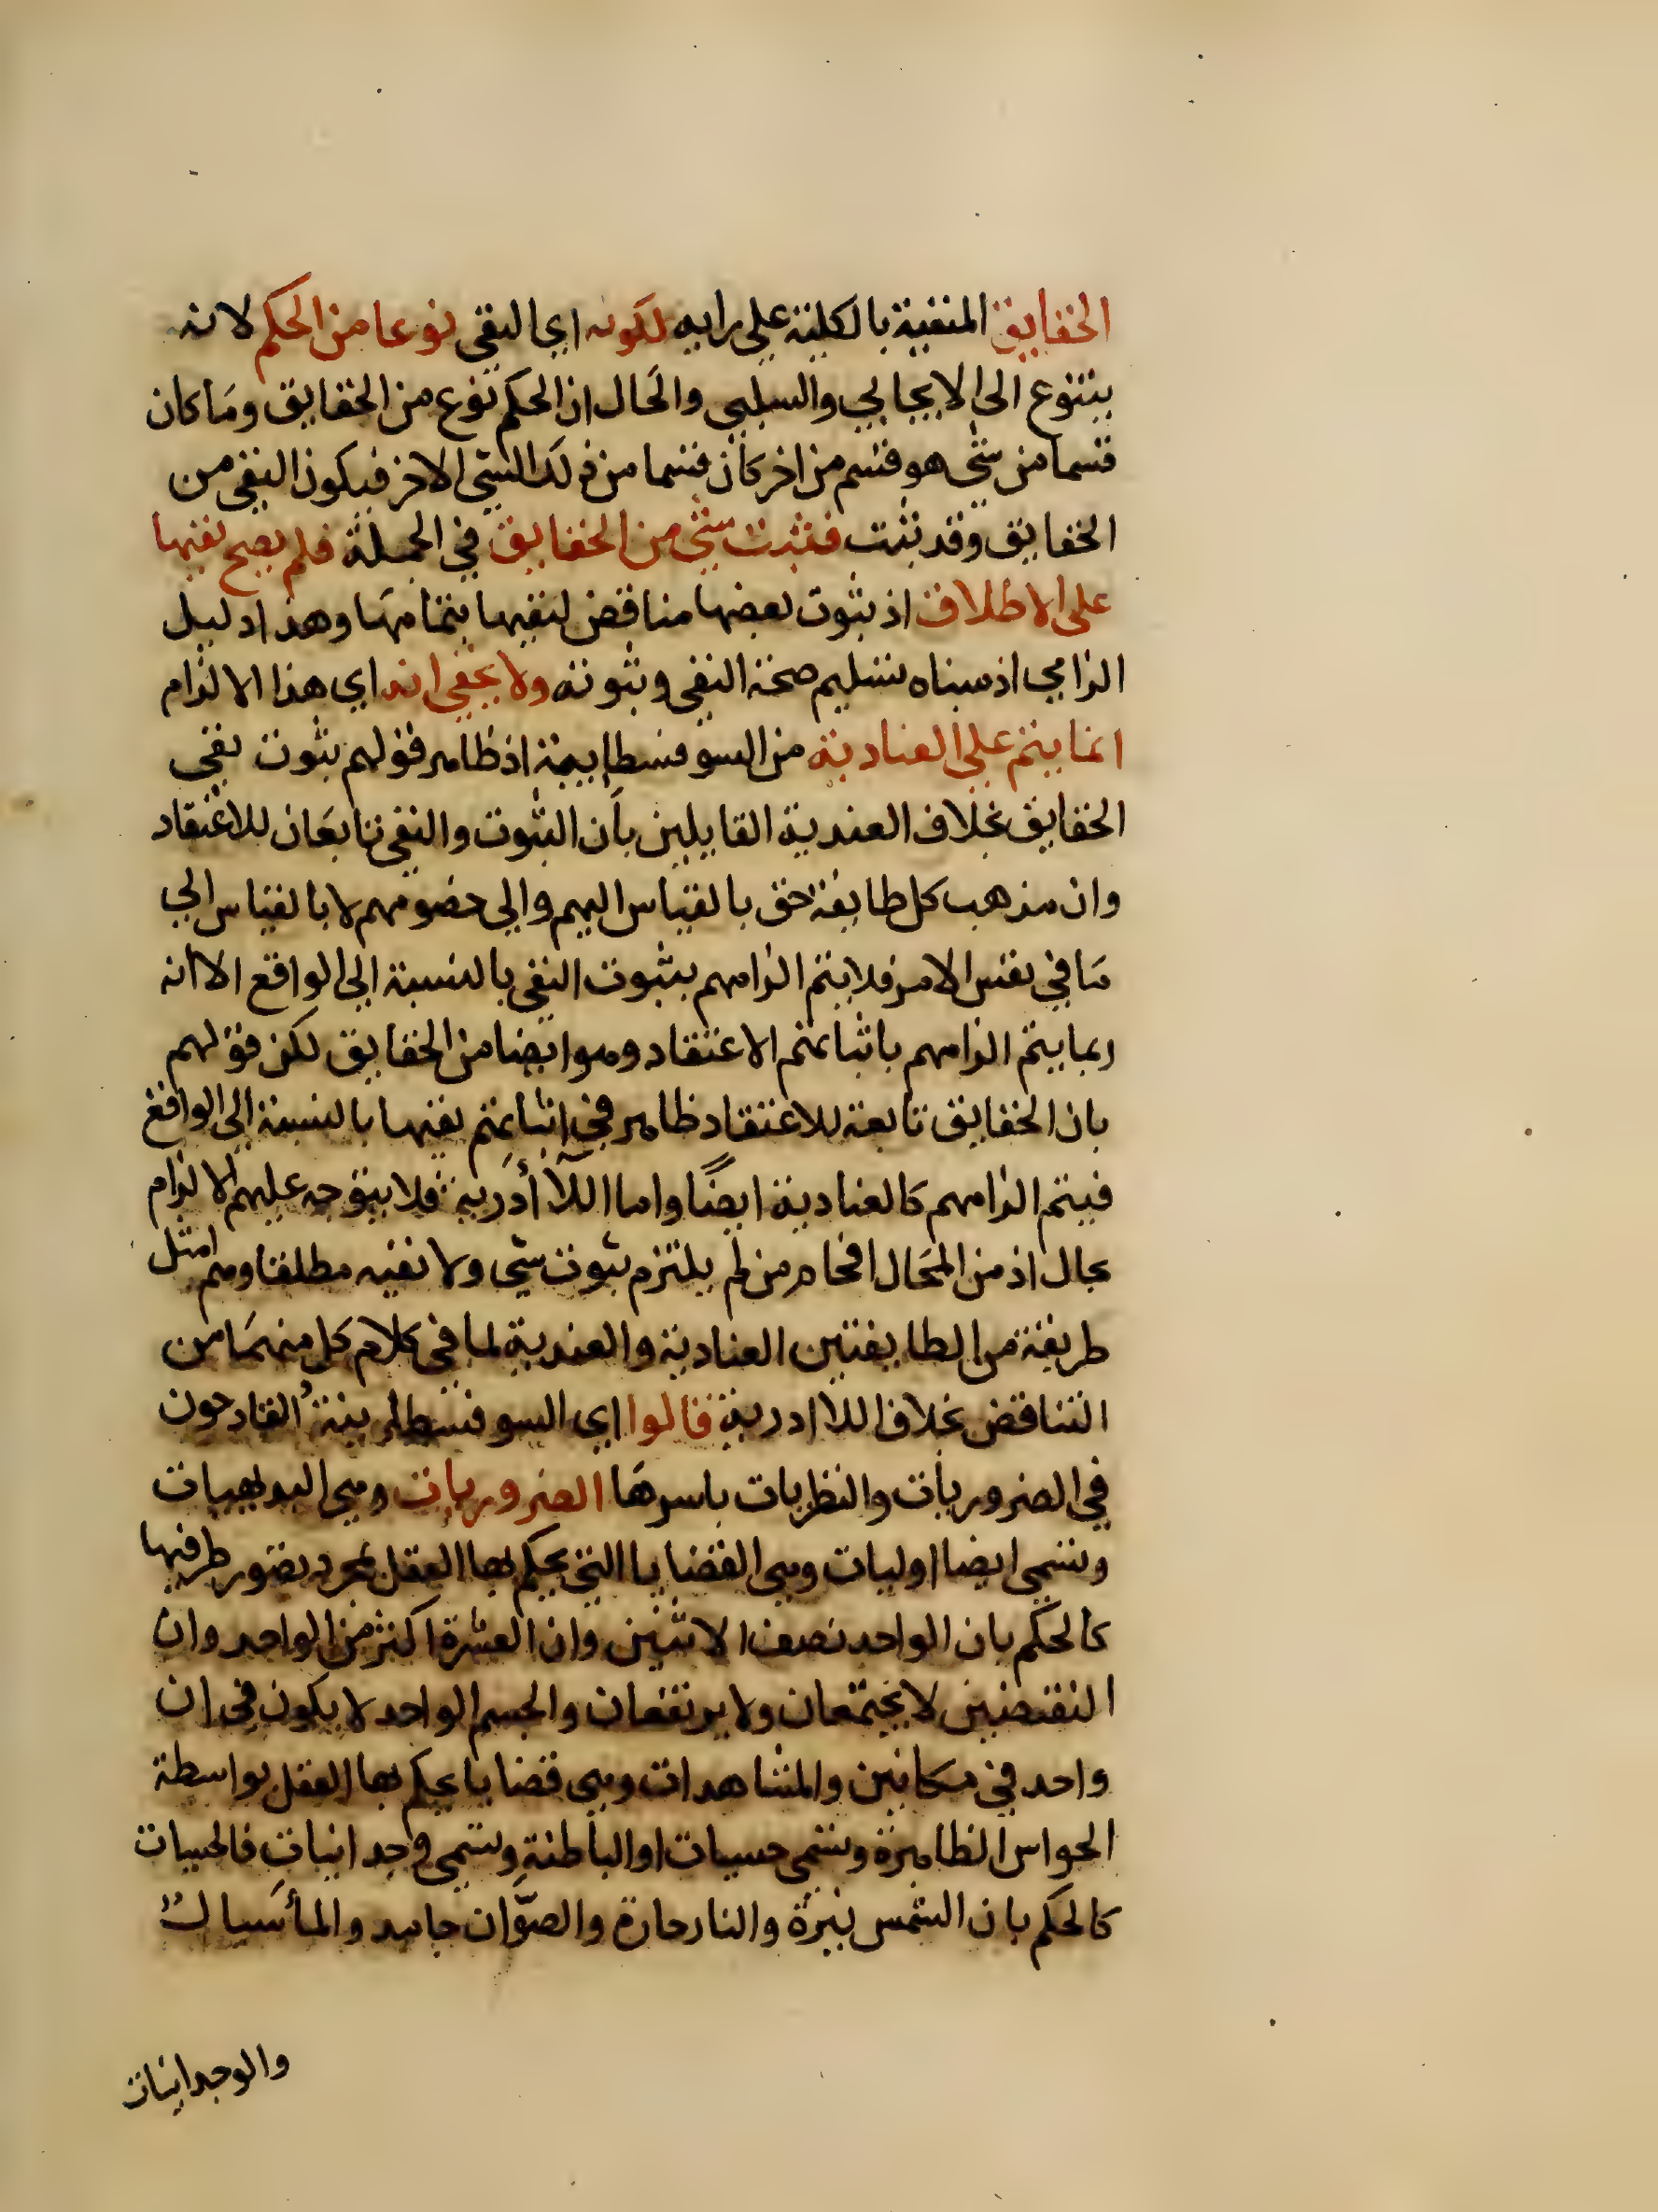 الحقايق المنفية بالكلية على رايه لكونه اي النفي نوعا من الحكم لانه
يتنوع الى الايجابي والسلبي والحال ان الحكم نوع من الحقايق وما كان
قسما من شي هو قسم من اخر كان قسما من ذلك الشي الاخر فيكون النفي من
الحقايق وقد ثبت فثبت شي من الحقايق في الجملة فلم يصح نفيها
على الاطلاق اذ ثبوت بعضها مناقض لنفيها بتمامها وهذا دليل
الزامي اذ مبناه تسليم صحة النفي وثبوته ولا يخفى انه اي هذا الالزام
انما يتم على العنادية من السوفسطايية اذ ظاهر قولهم ثبوت نفي
الحقايق بخلاف العندية القايلين بأن الثبوت والنفي تابعان للاعتقاد
وان مذهب كل طايفة حق بالقياس اليهم والى خصومهم لا بالقياس الى
ما في نفس الامر فلا يتم الزامهم بثبوت النفي بالنسبة الى الواقع الا انه
ربما يتم الزامهم باثباتهم الاعتقاد وهو ايضا من الحقايق لكن قولهم
بان الحقايق تابعة للاعتقاد ظاهر في اثباتهم نفيها بالنسبة الى الواقع
فيتم الزامهم كالعنادية ايضًا واما اللاأدرية فلا يتوجه عليهم الالزام
بحال اذ من المحال افحام من لم يلتزم ثبوت شي ولا نفيه مطلقا وهم امثل
طريقة من الطايفتين العنادية والعندية لما في كلام كل منهما من
التناقض بخلاف اللاادرية قالوا اي السوفسطايية القادحون
في الضروريات والنظريات باسرها الضروريات وهي البديهيات
وتسمى ايضا اوليات وهي القضايا التي يحكم بها العقل بمجرد تصور طرفيها
كالحكم بان الواحد نصف الاثنين وان العشرة اكثر من الواحد وان
النقيضين لا يجتمعان ولا يرتفعان والجسم الواحد لا يكون في ان
واحد في مكانين والمشاهدات وهي قضايا يحكم بها العقل بواسطة
الحواس الظاهرة وتسمى حسيات او الباطنة وتسمى وجدانيات فالحسيات
كالحكم بان الشمس نيرة والنار حارة والصوّان جامد والمأ سيال
والوجدانيات